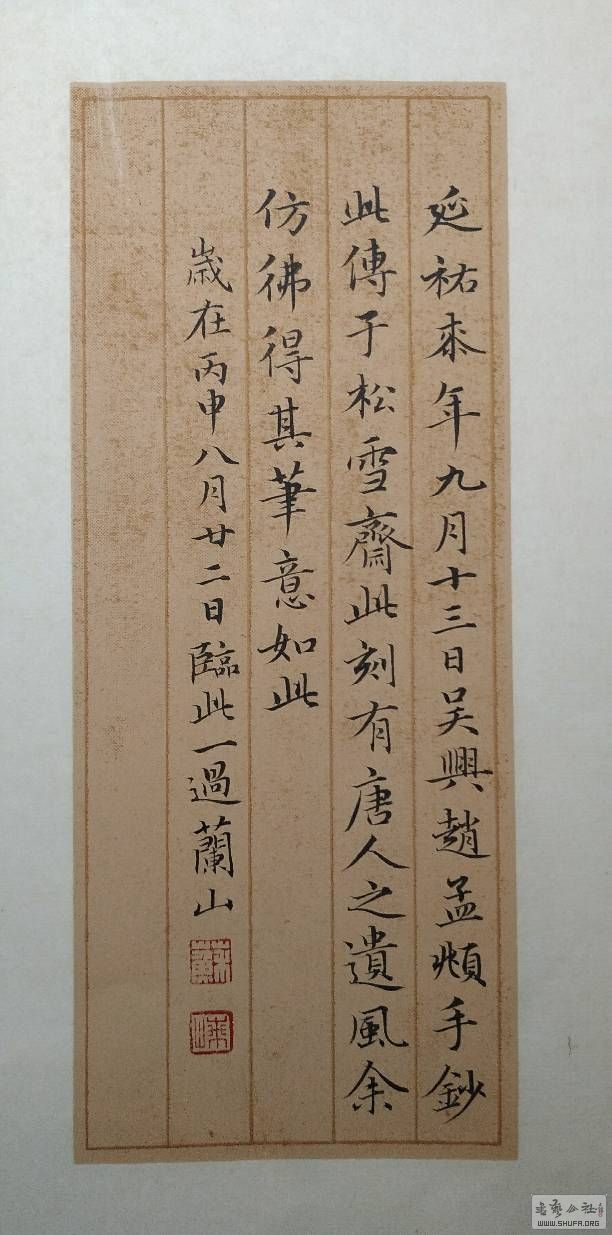 延祐桼年九月十三日吳興趙孟頫手鈔
此傳于松雪齋此刻有唐人之遺風余
仿彿得其筆意如此
歲在丙申八月廿二日臨此一過蘭山
書藝公社
WWW.SHUFA.ORG